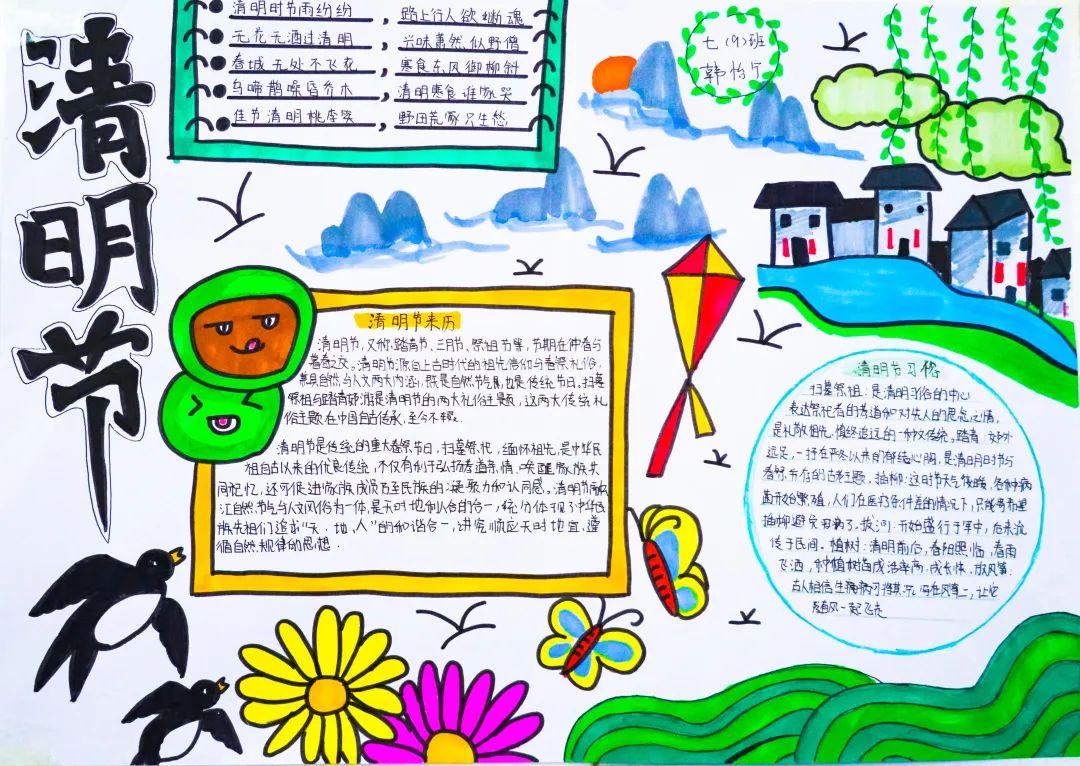 清明节
清明时节雨纷纷，路上行人欲断魂
无花无酒过清明，兴味萧然似野僧
春城无处不飞花，寒食东风御柳斜
乌啼鹊噪昏乔木，清明寒食谁家哭
佳节清明桃李笑，野田荒冢只生愁
七(9)班
韩怡
清明节来历
清明节，又称踏青节、三月节、祭祖节等，节期在仲春与
暮春之交。清明节源自上古时代的祖先信仰与春祭礼俗，
兼具自然与人文两大内涵，既是自然节气，也是传统节日，扫墓
祭祖与踏青郊游是清明节的两大礼俗主题，这两大传统礼
俗主题在中国自古传承，至今不辍。
清明节是传统的重大春祭节日，扫墓祭祀，缅怀祖先，是中华民
族自古以来的优良传统，不仅有利于弘扬孝道亲情、唤醒家族共
同记忆，还可促进家族成员乃至民族的凝聚力和认同感。清明节融
汇自然节气与人文风俗为一体，是天时地利人合的合一，充分体现了中华民
族先祖们追求“天、地、人”的和谐合一，讲究顺应天时地宜，遵
循自然规律的思想。
清明节习俗
扫墓祭祖：是清明习俗的中心
表达祭祀者的孝道和对先人的思念之情，
是礼敬祖先，慎终追远的一种文化传统。踏青：女郊外
远足，一抒在严冬以来的郁结心胸，是清明时节与
春祭并存的古老主题，插柳：这时节天气很暖，各种病
菌开始繁殖，人们在医疗条件差的情况下，只能寄希望
插柳避免 病了。拔河：开始盛行于军中，后来流
传于民间。植树：清明前后，春阳照临，春雨
飞洒，种植树苗成活率高，成长快，放风筝：
古人相信生病病习将其 写在风筝上，让它
随风一起飞走